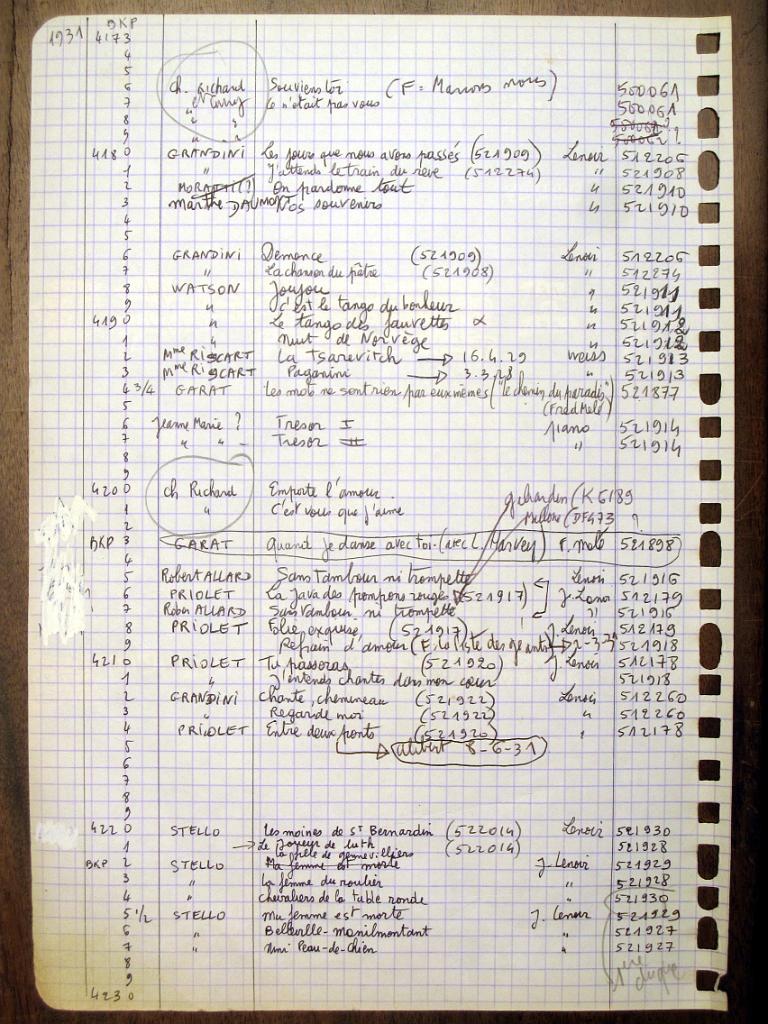 1931 BKP
4173
4
5
6 Ch. Richard Souviens toi (F = Marions nous) 500061
7 " ce n'était pas vous 500061
8 " "
9 "
4180 GRANDINI Les jours que nous avons passés (521909) Lenoir 512206
1 " J'attends le train du rêve (512274) " 521908
2 On pardonne tout " 521910
3 Marthe DAUMONT Nos souvenirs " 521910
4
5
6 GRANDINI (521909) Lenoir 512206
7 " La chanson du pâtre (521908) " 512274
8 WATSON Joujou " 521911
9 " C'est le tango du bonheur " 521911
4190 " Le tango des fauvettes " 521912
1 " Nuit de Norvège " 521912
2 Mme RISCART La Tsarevitch → 16.4.29 Weiss 521913
3 Mme RISCART Paganini → 3.3.28 " 521913
4 3/4 GARAT Les mots ne sont rien par eux mêmes ("le chemin du paradis") 521877
5 (Fred Mélé)
6 Jeanne Marie ? Tresor I piano 521914
7 " " Tresor II " 521914
8
9
4200 Ch Richard Emporte l'amour. (K6189
1 " C'est vous que j'aime (DF473 ?
2
BKP 3 GARAT Quand je danse avec toi (avec L. Harvey) F. Mélé 521898
4
5 Robert ALLARD Sans Tambour ni trompette Lenoir 521916
6 PRIOLET La java des pompons rouges (521917) J. Lenoir 512179
7 Robert ALLARD Sans tambour ni trompette " 521916
8 PRIOLET Folie exquise (521917) J. Lenoir 512179
9 Refrain d'amour 521918
4210 PRIOLET Tu passeras (521920) J Lenoir 512178
1 " J'entends chanter dans mon cœur 521918
2 GRANDINI Chante, chemineau (521922) Lenoir 512260
3 " Regarde moi (521922) " 512260
4 PRIOLET Entre deux ponts (521920) " 512178
5 → alibert 8-6-31
6
7
8
9
4220 STELLO Les moines de St Bernardin (522014) Lenoir 521930
1 → Le joueur de luth (522014) 521928
la fête de gennevilliers
BKP 2 STELLO Ma femme est morte J. Lenoir 521929
3 " La femme du roulier " 521928
4 " Chevaliers de la table ronde " 521930
5 1/2 STELLO Ma femme est morte J. Lenoir 521929
6 " Belleville-menilmontant " 521927
7 " Nini Peau-de-chien " 521927
8
9
4230